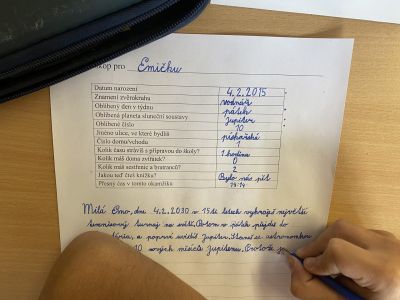 kop pro Emičku
Datum narození 4.2.2015
Znamení zvěrokruhu vodnář
Oblíbený den v týdnu pátek
Oblíbená planeta sluneční soustavy Jupiter
Oblíbené číslo 10
Jméno ulice, ve které bydlíš
Číslo domu/vchodu 1
Kolik času strávíš s přípravou do školy? 1 hodina
Kolik máš doma zvířátek? 0
Kolik máš sestřenic a bratranců? 2
Jakou teď čteš knížku? Bylo nás pět
Přesný čas v tomto okamžiku
Milá Emo, dne 4.2.2030 v 15 letech vyhraješ největší
turnaj na světě. Potom v pátek půjdeš do
a poprvé uvidíš Jupiter. Staneš se astronomkou
10 nových měsíců Jupiteru. Protože